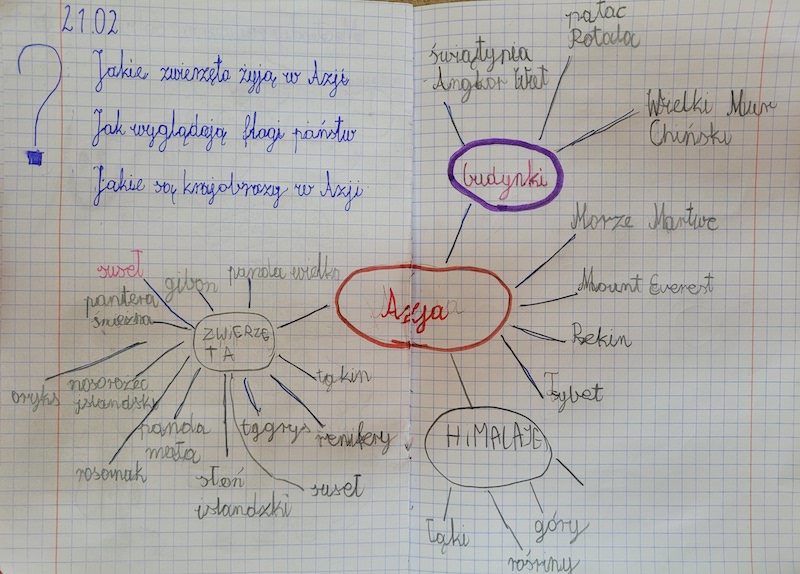 21.02
?
Jakie zwierzęta żyją w Azji
Jak wyglądają flagi państw
Jakie są krajobrazy w Azji
świątynia
Angkor Wat
pałac
Potala
Wielki Mur
Chiński
budynki
Morze Martwe
Mount Everest
Pekin
Tybet
Azja
suseł
gibon
panda wielka
pantera
śnieżna
ZWIERZĘ
TA
oryks
nosorożec
islandski
rosomak
panda
mała
słoń
islandzki
tygrys
suseł
renifery
takin
HIMALAJE
łąki
rośliny
góry